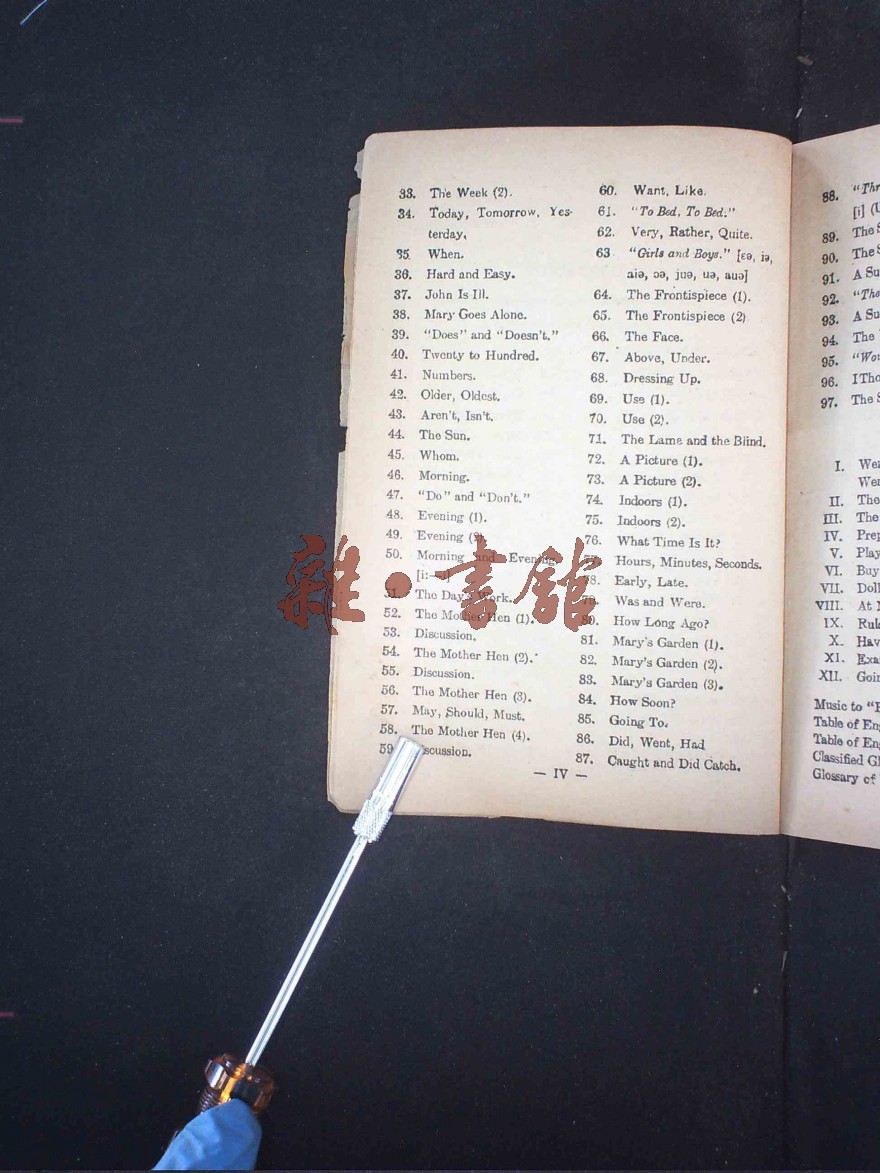 33. The Week (2).
34. Today, Tomorrow, Yes-
terday.
35. When.
36. Hard and Easy.
37. John Is Ill.
38. Mary Goes Alone.
39. "Does" and "Doesn't."
40. Twenty to Hundred.
41. Numbers.
42. Older, Oldest.
43. Aren't, Isn't.
44. The Sun.
45. Whom.
46. Morning.
47. "Do" and "Don't."
48. Evening (1).
49. Evening (2).
50. Morning and Evening.
51. The Day's Work.
52. The Mother Hen (1).
53. Discussion.
54. The Mother Hen (2).
55. Discussion.
56. The Mother Hen (3).
57. May, Should, Must.
58. The Mother Hen (4).
59
60. Want, Like.
61. "To Bed, To Bed."
62. Very, Rather, Quite.
63 "Girls and Boys." [ɛə, iə,
aiə, ɔə, juə, uə, auə]
64. The Frontispiece (1).
65. The Frontispiece (2)
66. The Face.
67. Above, Under.
68. Dressing Up.
69. Use (1).
70. Use (2).
71. The Lame and the Blind.
72. A Picture (1).
73. A Picture (2).
74. Indoors (1).
75. Indoors (2).
76. What Time Is It?
Hours, Minutes, Seconds.
78. Early, Late.
79. Was and Were.
80. How Long Ago?
81. Mary's Garden (1).
82. Mary's Garden (2).
83. Mary's Garden (3).
84. How Soon?
85. Going To.
86. Did, Went, Had
87. Caught and Did Catch.
— IV —
88.
[i]
89. The
90. The
91. A
92.
93. A
94. The
95.
96. I
97. The
I.
II. The
III. The
IV.
V. Play
VI. Buy
VII.
VIII. At
IX.
X.
XI.
XII.
Music to
Table of
Table of
Classified
Glossary of
雜·書館